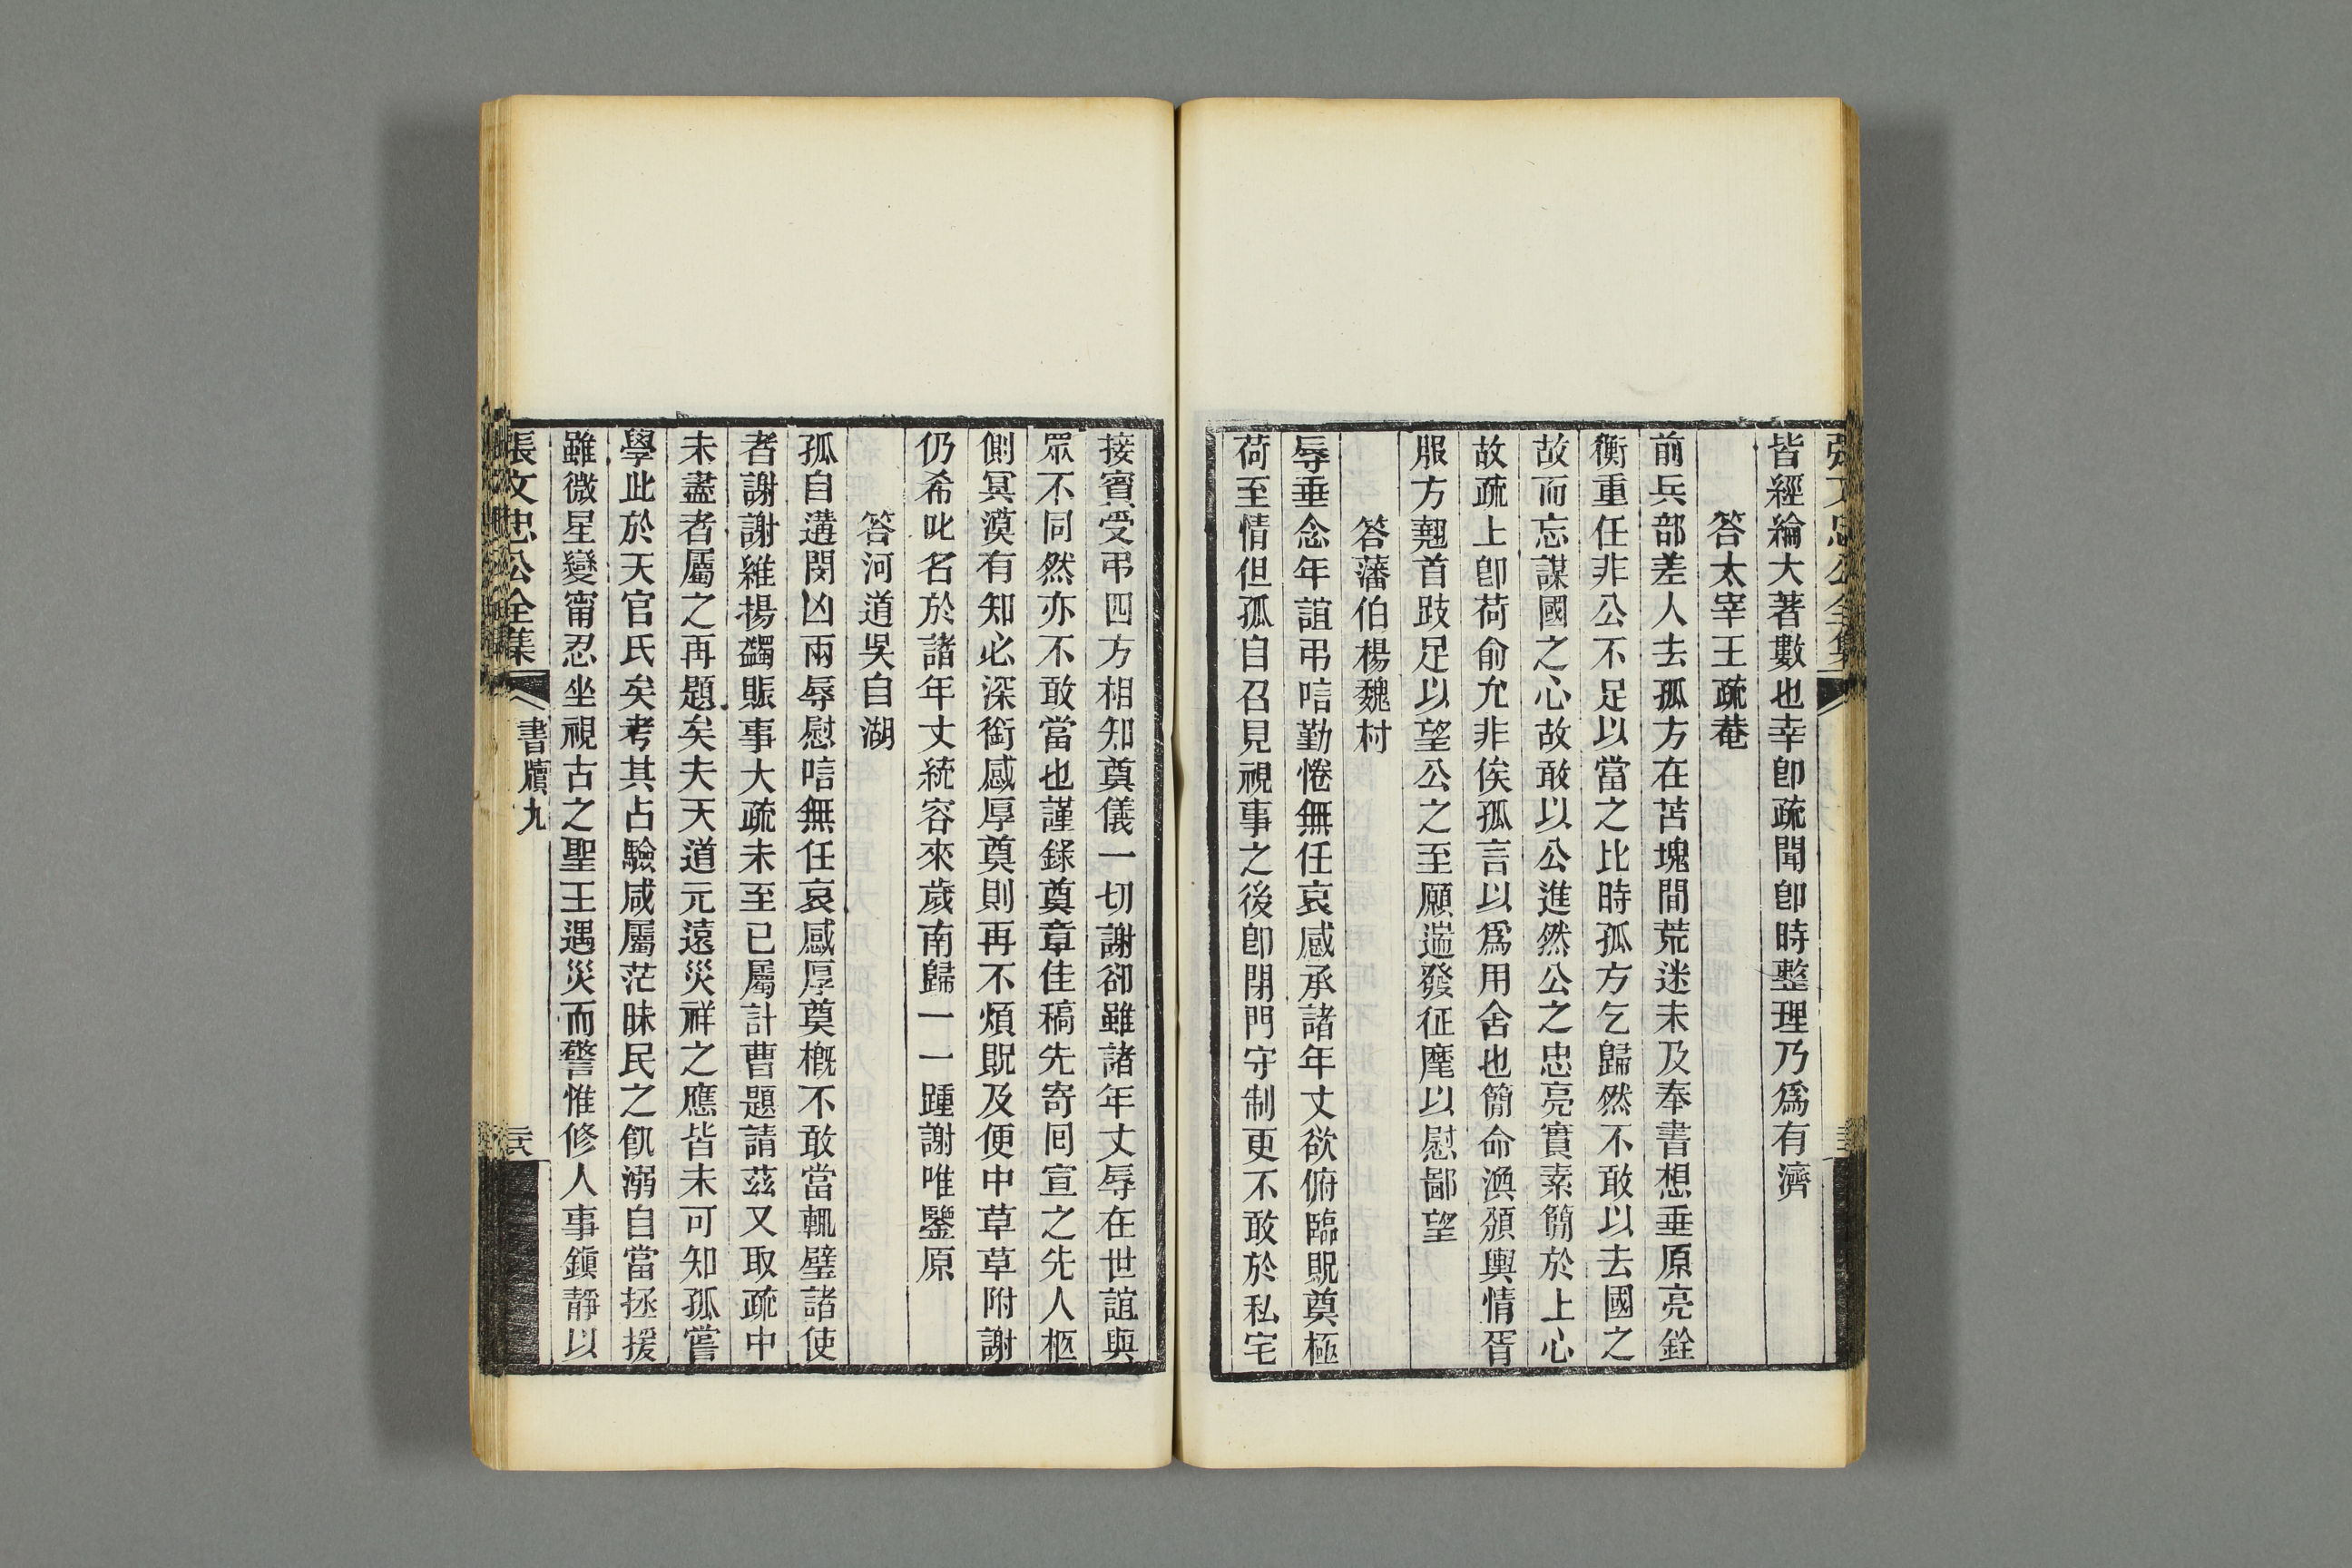 張文忠公全集
皆經綸大著數也幸卽疏聞卽時整理乃爲有濟
答太宰王疏菴
前兵部差人去孤方在苫塊間荒迷未及奉書想垂原亮銓
衡重任非公不足以當之比時孤方乞歸然不敢以去國之
故而忘謀國之心故敢以公進然公之忠亮實素簡於上心
故疏上卽荷俞允非俟孤言以爲用舍也簡命渙頒輿情胥
服方翹首跂足以望公之至願遄發征麾以慰鄙望
答藩伯楊魏村
辱垂念年誼弔唁勤惓無任哀感承諸年丈欲俯臨貺奠極
荷至情但孤自召見視事之後卽閉門守制更不敢於私宅
接賓受弔四方相知奠儀一切謝卻雖諸年丈辱在世誼與
眾不同然亦不敢當也謹錄奠章佳稿先寄囘宣之先人柩
側冥漠有知必深銜感厚奠則再不煩貺及便中草草附謝
仍希叱名於諸年丈統容來歲南歸一一踵謝唯鑒原
答河道吳自湖
孤自遘閔凶兩辱慰唁無任哀感厚奠槪不敢當輒璧諸使
者謝謝維揚蠲賑事大疏未至已屬計曹題請茲又取疏中
未盡者屬之再題矣夫天道元遠災祥之應皆未可知孤嘗
學此於天官氏矣考其占驗咸屬茫昧民之飢溺自當拯援
雖微星變甯忍坐視古之聖王遇災而警惟修人事鎭靜以
張文忠公全集
書牘九